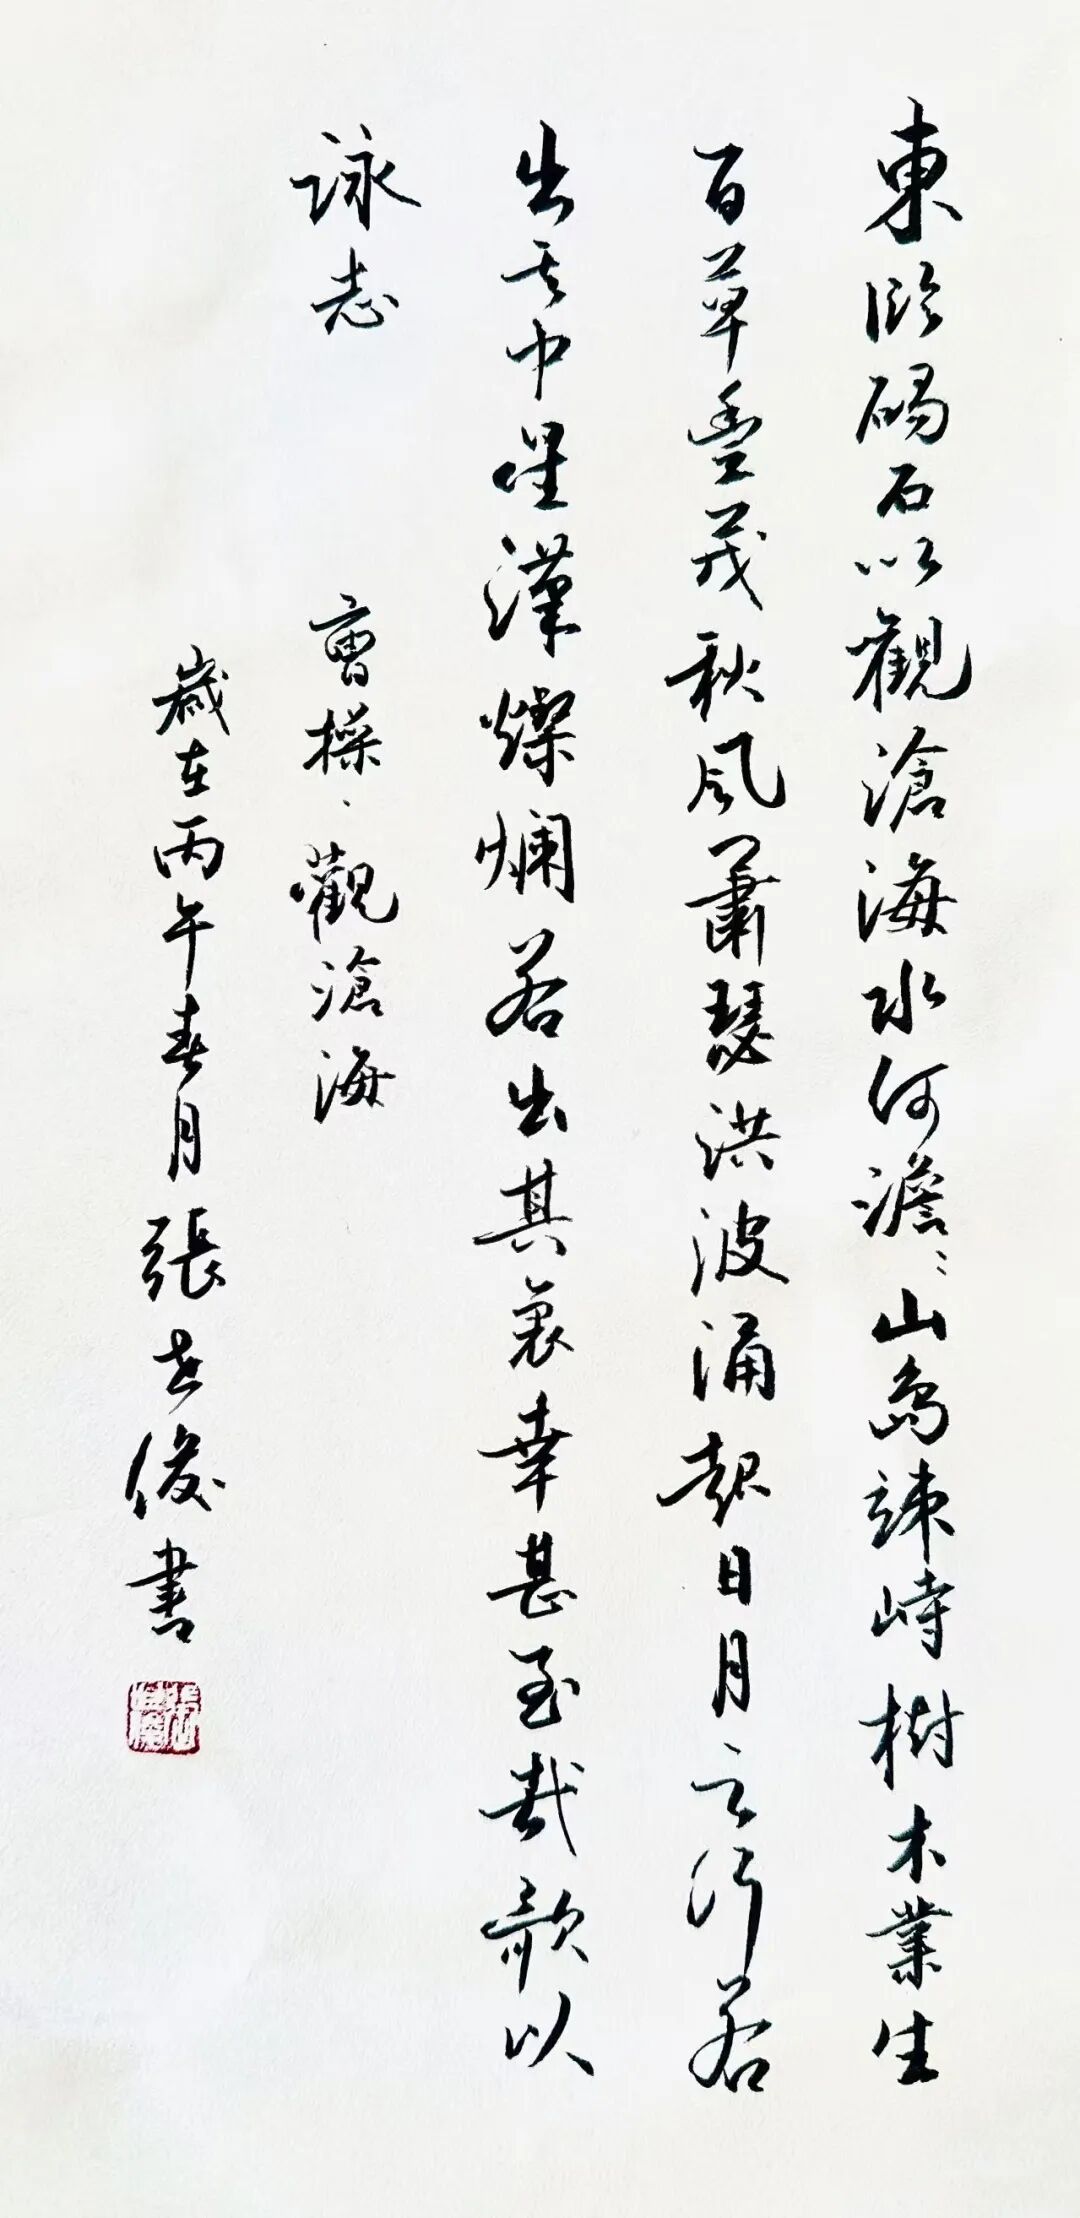 東臨碣石以觀滄海水何澹〻山島竦峙樹木業生
百草豐茂秋風蕭瑟洪波涌起日月之行若
出其中星漢燦爛若出其裏幸甚至哉歌以
詠志
曹操、觀滄海
歲在丙午春月張世俊書